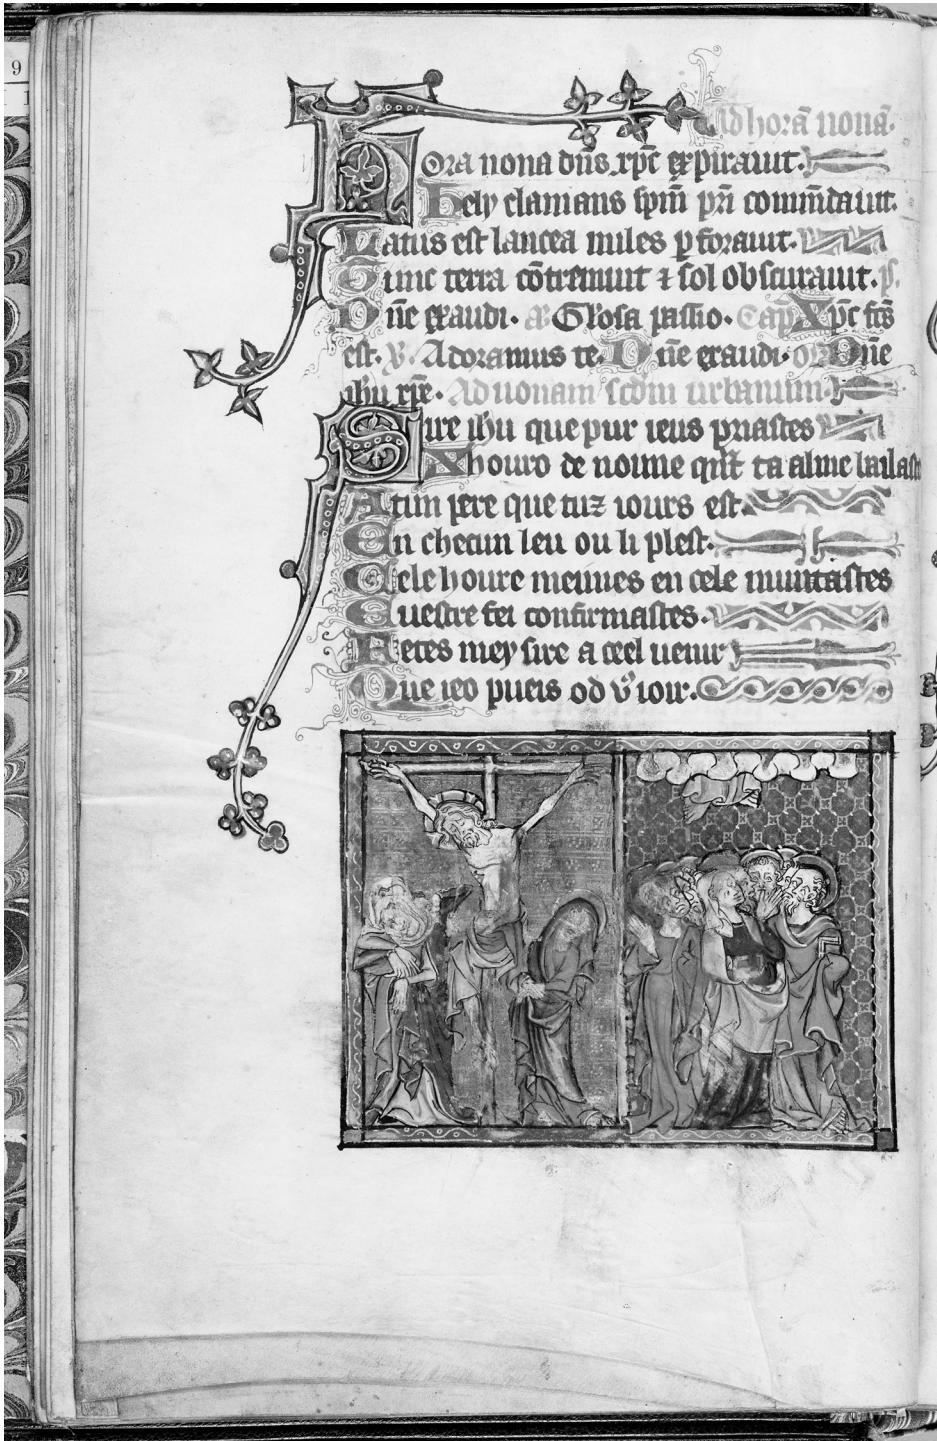 9
Ad horā nonā.
Hora nona dn̄s xp̄c expirauit.
Hely clamans sp̄m pr̄i com̄m̄dauit.
Latus est lancea miles p forauit.
Tunc terra cōtremuit ⁊ sol obscurauit. p̄.
Dn̄e exaudi. Gl'osa passio. Cap̄ Xp̄c fc̄s
est. V. Adoramus te. Dn̄e exaudi. or̄ Dn̄e
ih̄u xp̄e. Ad nonam scdm urbanum.
Sire ih̄u que pur ieus pnastes
A houro de nonne qn̄t ta alme lailast
A tun pere que tuz iours est.
En checun leu ou li plest.
Cele houre meimes en cele muntastes
E uestre fei confirmastes.
Fetes mey sire a ceel uenir
Que ieo pueis od v' ioir.